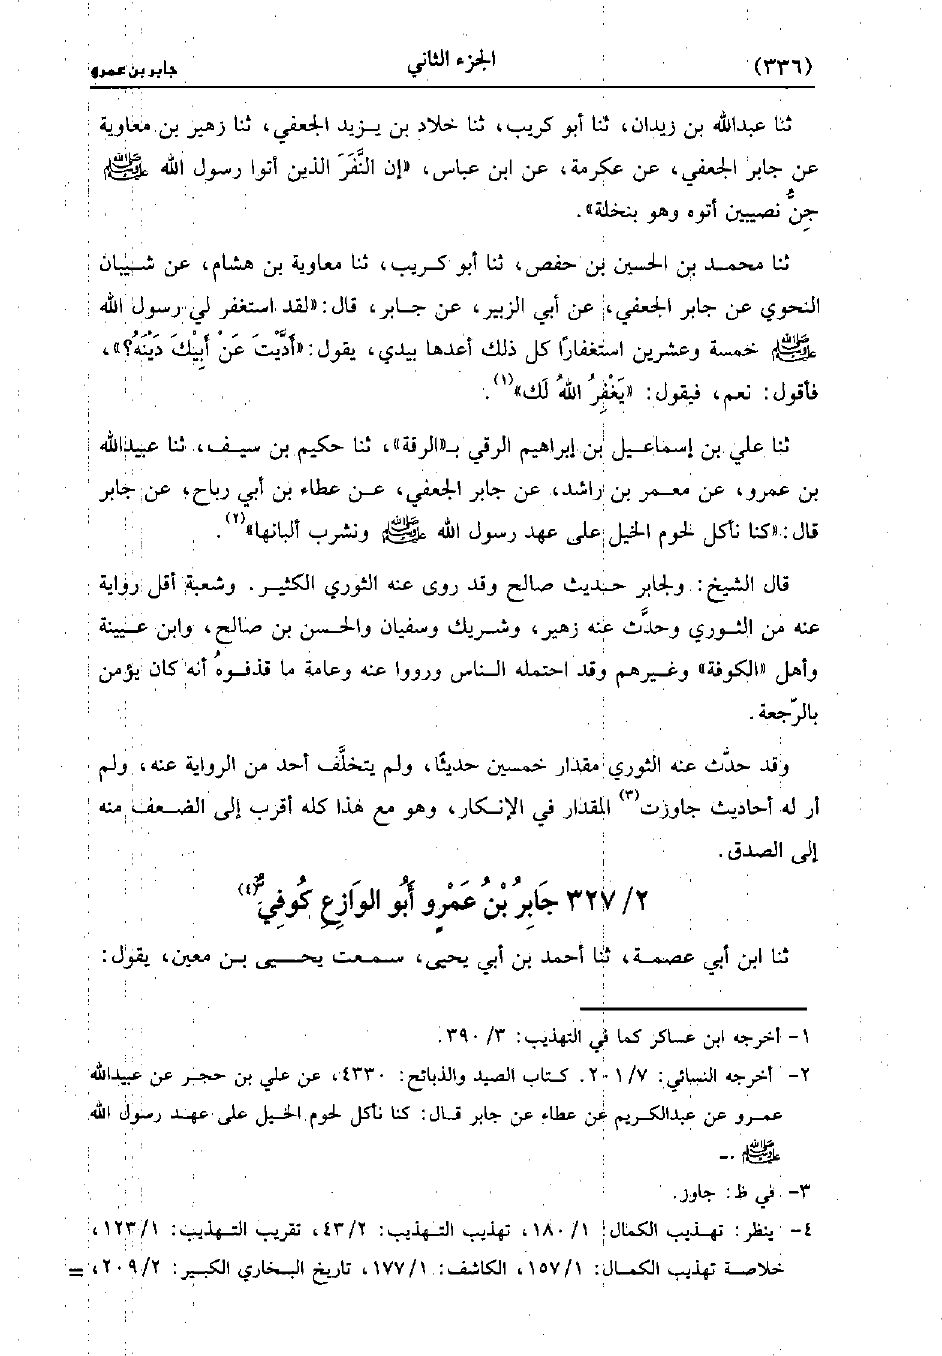 (٣٣٦) الجزء الثاني جابر بن عمرو
ثنا عبدالله بن زيدان، ثنا أبو كريب، ثنا خلاد بن يزيد الجعفي، ثنا زهير بن معاوية
عن جابر الجعفي، عن عكرمة، عن ابن عباس، «إن النَّفَرَ الذين أتوا رسول الله ﷺ
جِنُّ نصيبين أتوه وهو بنخلة».
ثنا محمد بن الحسين بن حفص، ثنا أبو كريب، ثنا معاوية بن هشام، عن شيبان
النحوي عن جابر الجعفي، عن أبي الزبير، عن جابر، قال: «لقد استغفر لي رسول الله
ﷺ خمسة وعشرين استغفارًا كل ذلك أعدها بيدي، يقول: «أَدَّيْتَ عَنْ أَبِيكَ دَيْنَهُ؟»،
فأقول: نعم، فيقول: «يَغْفِرُ اللهُ لَك»(١).
ثنا علي بن إسماعيل بن إبراهيم الرقي بـ«الرقة»، ثنا حكيم بن سيف، ثنا عبيدالله
بن عمرو، عن معمر بن راشد، عن جابر الجعفي، عن عطاء بن أبي رباح، عن جابر
قال: «كنا نأكل لحوم الخيل على عهد رسول الله ﷺ ونشرب ألبانها»(٢).
قال الشيخ: ولجابر حديث صالح وقد روى عنه الثوري الكثير. وشعبة أقل رواية
عنه من الثوري وحدَّث عنه زهير، وشريك وسفيان والحسن بن صالح، وابن عيينة
وأهل «الكوفة» وغيرهم وقد احتمله الناس ورووا عنه وعامة ما قذفوهُ أنه كان يؤمن
بالرّجعة.
وقد حدَّث عنه الثوري مقدار خمسين حديثًا، ولم يتخلَّف أحد من الرواية عنه، ولم
أر له أحاديث جاوزت(٣) المقدار في الإنكار، وهو مع هذا كله أقرب إلى الضعف منه
إلى الصدق.
٢/ ٣٢٧ جَابِرُ بْنُ عَمْرٍو أَبُو الوَازِعِ كُوفِيٌّ(٤)
ثنا ابن أبي عصمة، ثنا أحمد بن أبي يحيى، سمعت يحيى بن معين، يقول:
١- أخرجه ابن عساكر كما في التهذيب: ٣/ ٣٩٠.
٢- أخرجه النسائي: ٧/ ٢٠١. كتاب الصيد والذبائح: ٤٣٣٠، عن علي بن حجر عن عبيدالله
عمرو عن عبدالكريم عن عطاء عن جابر قال: كنا نأكل لحوم الخيل على عهد رسول الله
ﷺ.-
٣- في ظ: جاوز.
٤- ينظر: تهذيب الكمال: ١/ ١٨٠، تهذيب التهذيب: ٢/ ٤٣، تقريب التهذيب: ١/ ١٢٣،
خلاصة تهذيب الكمال: ١/ ١٥٧، الكاشف: ١/ ١٧٧، تاريخ البخاري الكبير: ٢/ ٢٠٩، =